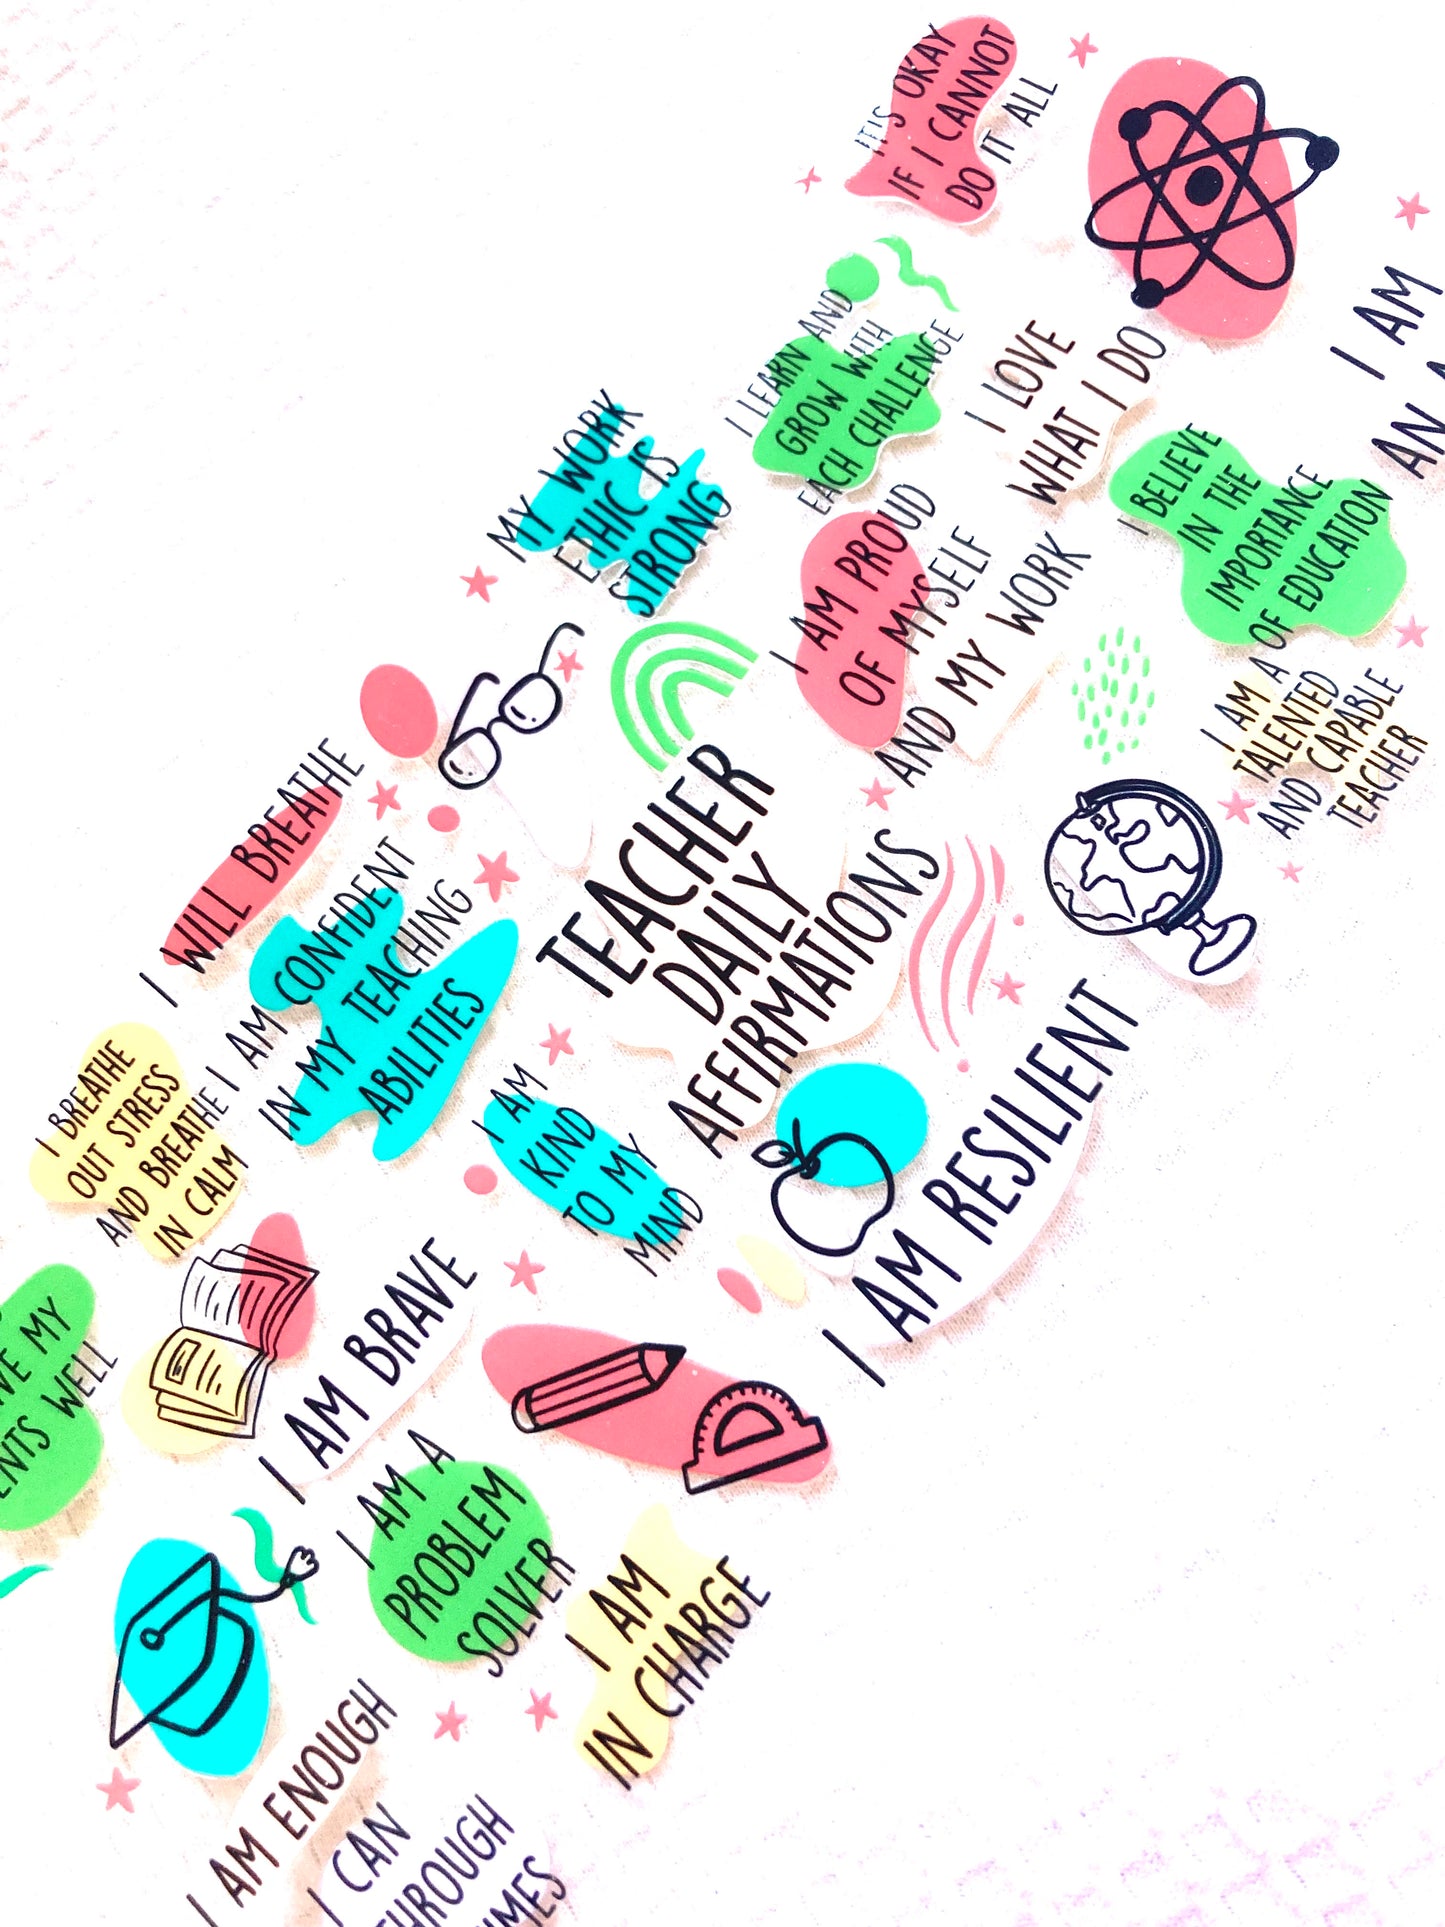 IT'S OKAY
IF I CANNOT
DO IT ALL
I AM
AN
I LEARN AND
GROW WITH
EACH CHALLENGE
I LOVE
WHAT I DO
MY WORK
ETHIC IS
STRONG
I AM PROUD
OF MYSELF
AND MY WORK
I BELIEVE
IN THE
IMPORTANCE
OF EDUCATION
I AM A
TALENTED
AND CAPABLE
TEACHER
I WILL BREATHE
TEACHER
DAILY
AFFIRMATIONS
I AM CONFIDENT
IN MY TEACHING
ABILITIES
I BREATHE
OUT STRESS
AND BREATHE
IN CALM
I AM
KIND
TO MY
MIND
I AM RESILIENT
MY
WELL
I AM BRAVE
I AM A
PROBLEM
SOLVER
I AM
IN CHARGE
I AM ENOUGH
I CAN